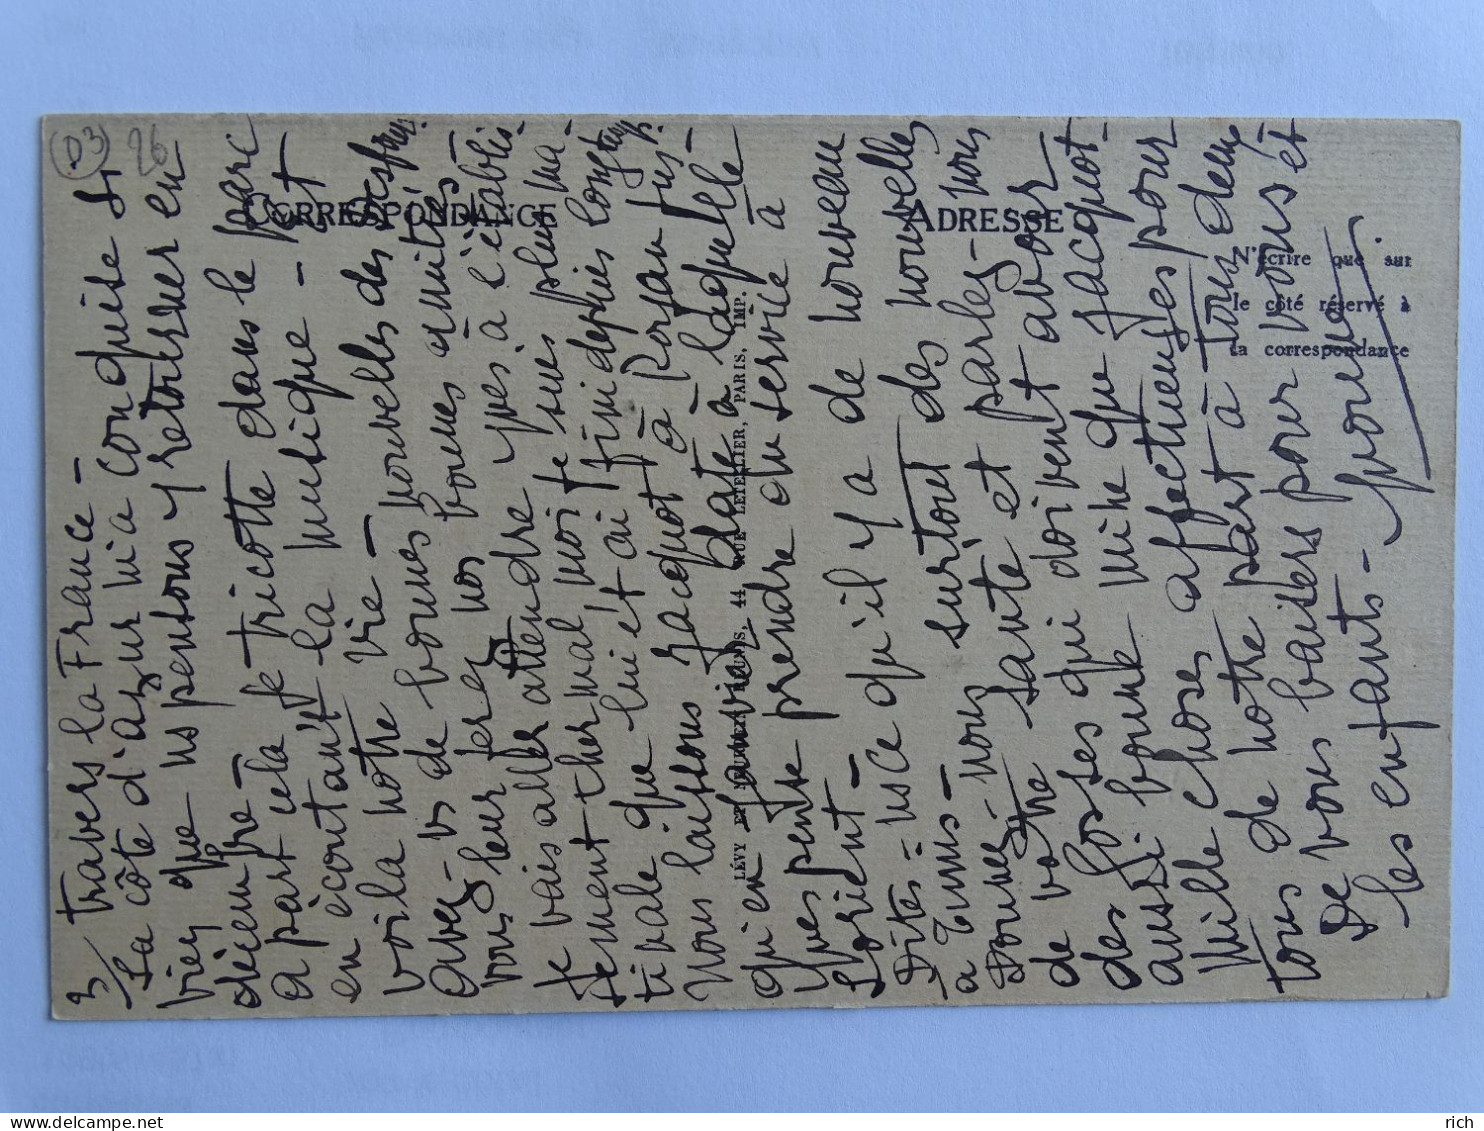 3/ travers la France –
La côte d'azur m'a conquise si
bien que ns pensons y retourner en
décembre –
a part cela je tricotte dans le parc
en écoutant la musique – et
voila notre vie –
Avez-vs de bonnes nouvelles des Desfray.
vous leur ferez nos bonnes amitiés
Je vais aller attendre Yves à l'établis-
sement thermal moi je suis plus ma-
tinale que lui et ai fini depuis longtemps.
Nous laissons Jacquot à Rosan jus-
qu'en janvier date à laquelle
Yves pense prendre du service à
Lorient –
Dites-ns ce qu'il y a de nouveau
a Tunis –
Donnez-nous surtout des nouvelles
de votre santé et parlez-nous
des gosses qui doivent avoir
aussi bonne mine que Jacquot –
Mille choses affectueuses pour
tous de notre part à tous deux
De bons baisers pour vous et
les enfants –
CORRESPONDANCE
ADRESSE
N'écrire que sur
le côté réservé à
la correspondance
LÉVY ET NEURDEIN RÉUNIS, 44, RUE LETELLIER, PARIS, IMP.
(03)
26
rich